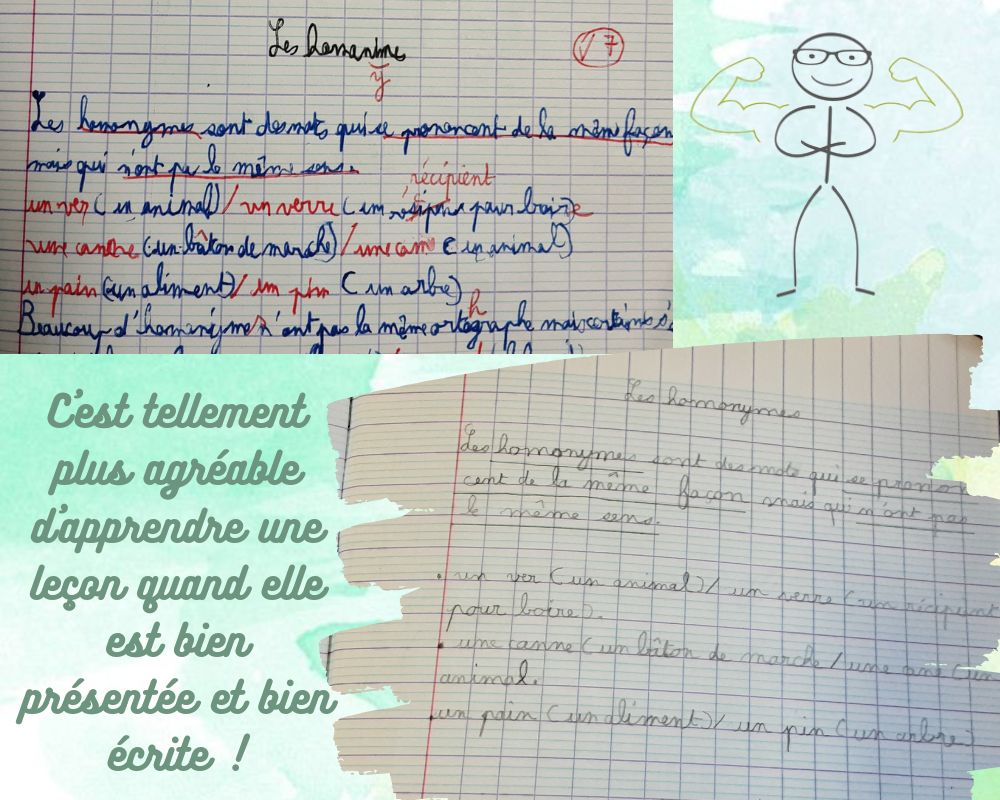 Les homanime
y
√ 7
Les homonymes sont des mots qui se prononcent de la même façon
mais qui n'ont pas le même sens.
récipient
un ver (un animal) / un verre (un résipns pour boire
une canne (un bâton de marche) / une cane (un animal)
un pain (un aliment) / un pin (un arbre)
h
Beaucoup d'hominymes n'ont pas la même ortographe mais certains s'é
C'est tellement
plus agréable
d'apprendre une
leçon quand elle
est bien
présentée et bien
écrite !
Les homonymes
Les homonymes sont des mots qui se pronon
cent de la même façon mais qui n'ont pas
le même sens.
. un ver (un animal) / un verre (un récipient
pour boire).
. une canne (un bâton de marche / une cane (un
animal.
.un pain (un aliment) / un pin (un arbre)